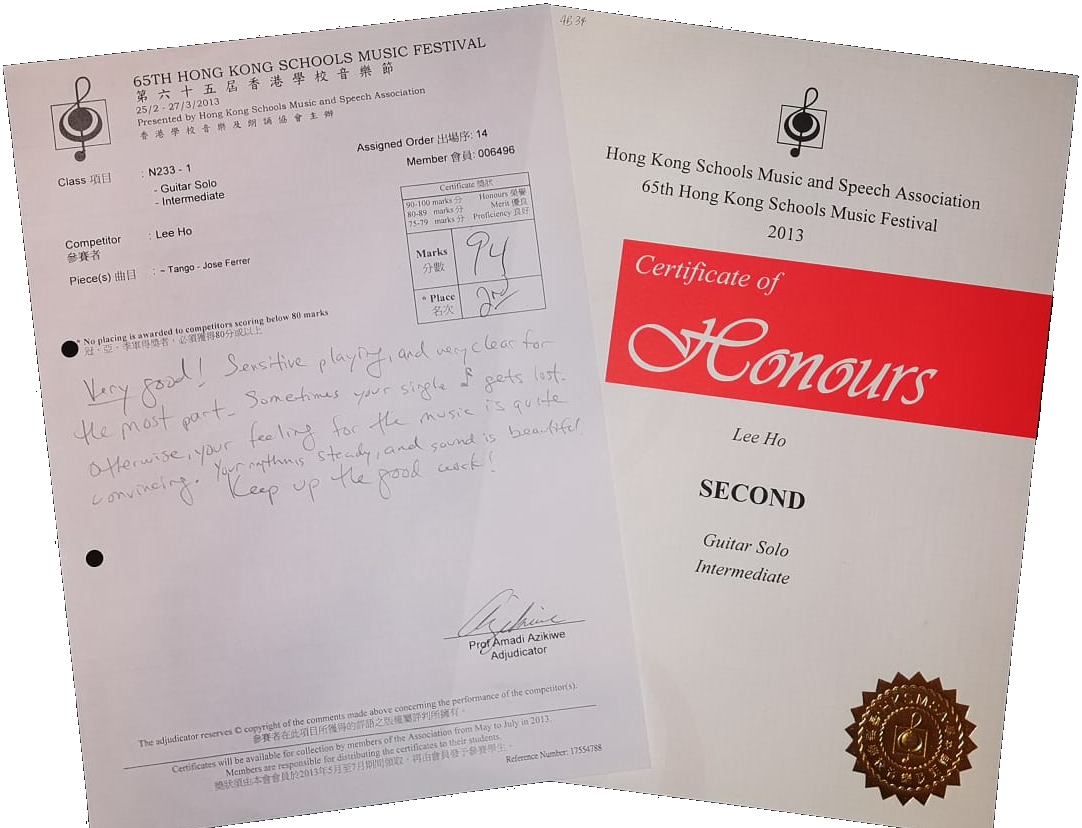 65TH HONG KONG SCHOOLS MUSIC FESTIVAL
第六十五屆香港學校音樂節
25/2 - 27/3/2013
Presented by Hong Kong Schools Music and Speech Association
香港學校音樂及朗誦協會主辦
Assigned Order 出場序: 14
Member 會員: 006496
Class 項目 : N233 - 1
- Guitar Solo
- Intermediate
Competitor : Lee Ho
參賽者
Piece(s) 曲目 : ~ Tango - Jose Ferrer
Certificate 獎狀
90-100 marks 分 Honours 榮譽
80-89 marks 分 Merit 優良
75-79 marks 分 Proficiency 良好
Marks 94
分數
* Place 2nd
名次
* No placing is awarded to competitors scoring below 80 marks
冠、亞、季軍得獎者，必須獲得80分或以上
Very good! Sensitive playing, and very clear for
the most part. Sometimes your single ♪ gets lost.
Otherwise, your feeling for the music is quite
convincing. Your rythm is steady, and sound is beautiful.
Keep up the good work!
Prof Amadi Azikiwe
Adjudicator
The adjudicator reserves © copyright of the comments made above concerning the performance of the competitor(s).
參賽者在此項目所獲得的評語之版權屬評判所擁有。
Certificates will be available for collection by members of the Association from May to July in 2013.
Members are responsible for distributing the certificates to their students.
獎狀須由本會會員於2013年5月至7月期間領取，再由會員發予參賽學生。
Reference Number: 17554788
4B 34
Hong Kong Schools Music and Speech Association
65th Hong Kong Schools Music Festival
2013
Certificate of
Honours
Lee Ho
SECOND
Guitar Solo
Intermediate